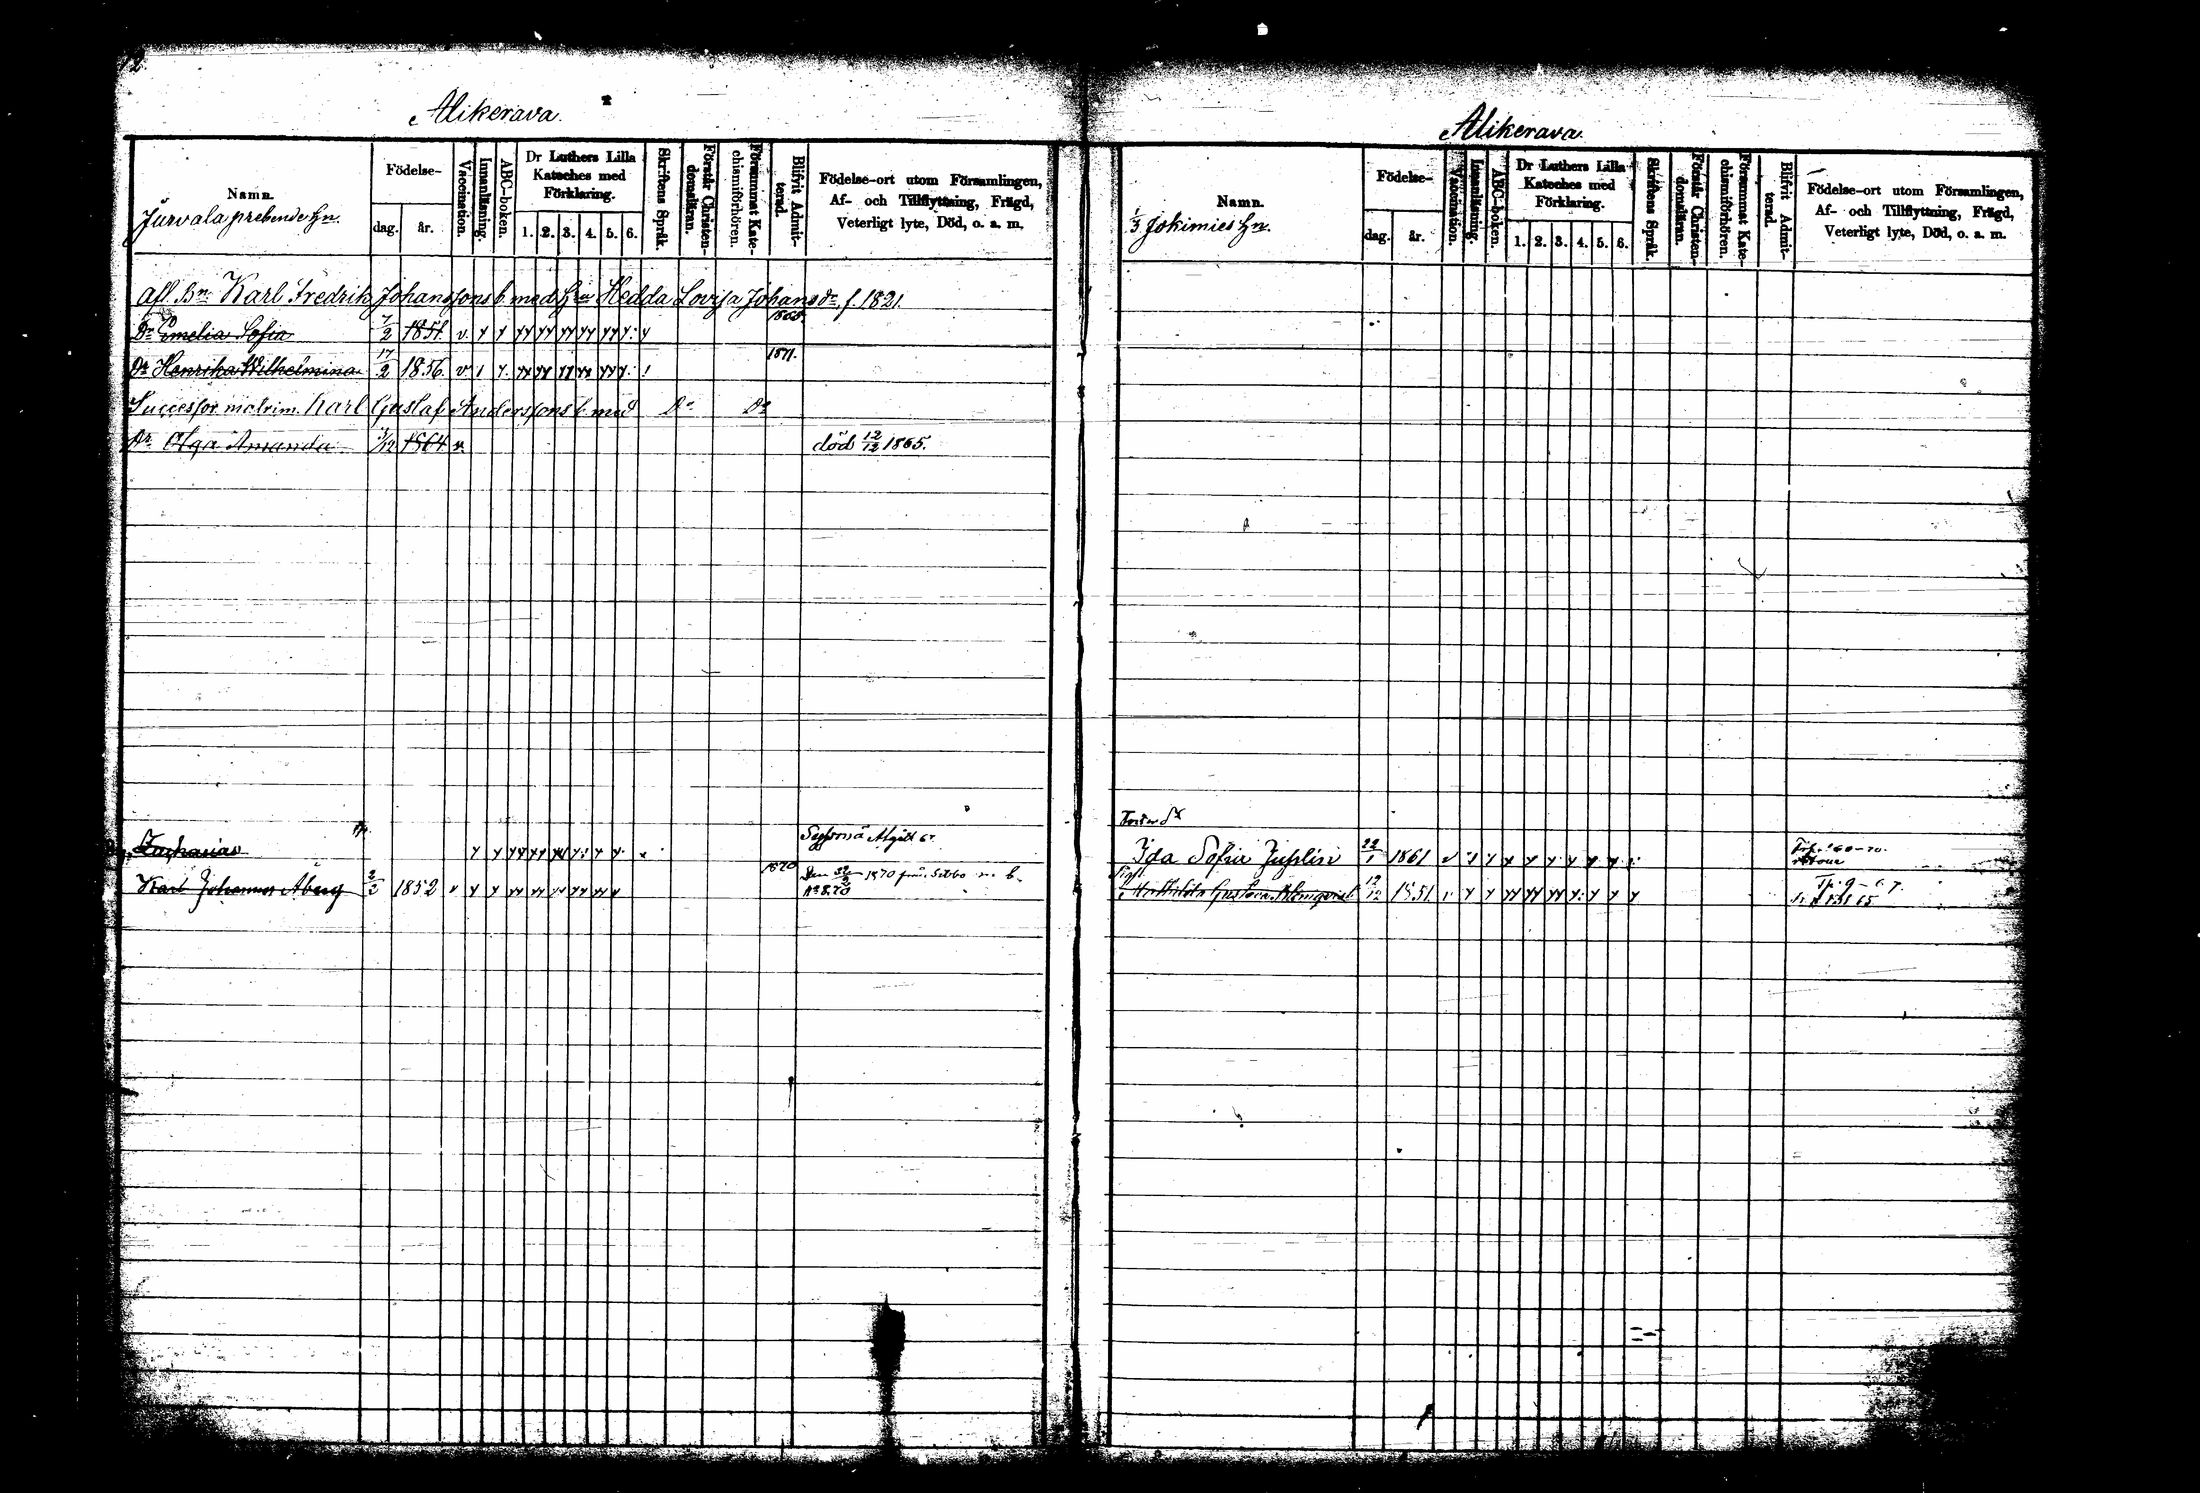 12.
Alikerava.
Namn.
Jurvala prebende Hn.
Födelse-
dag. år.
Vaccination.
Innanläsning.
ABC-boken.
Dr Luthers Lilla
Kateches med
Förklaring.
1. 2. 3. 4. 5. 6.
Skriftens Språk.
Förstår Christen-
domsläran.
Försummat Kate-
chismiförhören.
Blifvit Admit-
terad.
Födelse-ort utom Församlingen,
Af- och Tillflyttning, Frägd,
Veterligt lyte, Död, o. a. m.
Afl. Bn Karl Fredrik Johanssons b. med Hru Hedda Lovisa Johansdr f. 1821.
Dr Emelia Sofia 7/2 1851. v. 1868.
Dr Henrika Wilhelmina 17/2 1856. v. 1871.
Successor matrim. Karl Gustaf Anderssons b. med Do Do
Dr Olga Amanda 1/12 1864 v. död 12/12 1865.
Zacharias Afgått
Karl Johannes Åberg 2/3 1852 v 1870 Den 1870 från Sibbo
Alikerava
Namn.
1/3 Jokimies Hn.
Födelse-
dag. år.
Vaccination.
Innanläsning.
ABC-boken.
Dr Luthers Lilla
Kateches med
Förklaring.
1. 2. 3. 4. 5. 6.
Skriftens Språk.
Förstår Christen-
domsläran.
Försummat Kate-
chismiförhören.
Blifvit Admit-
terad.
Födelse-ort utom Församlingen,
Af- och Tillflyttning, Frägd,
Veterligt lyte, Död, o. a. m.
Foster Dr
Ida Sofia Juslin 22/1 1861 v
Gustava Blomqvist 12/12 1851. v